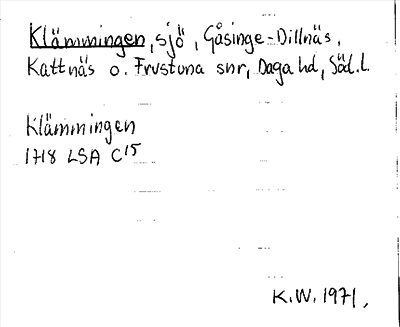 Klämmingen, sjö, Gåsinge-Dillnäs,
Kattnäs o. Frustuna snr, Daga hd, Söd.l.
Klämmingen
1718 LSA C15
K.W. 1971.